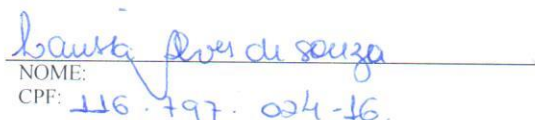 Alves de souza
NOME:
CPF: 116.797.024-16